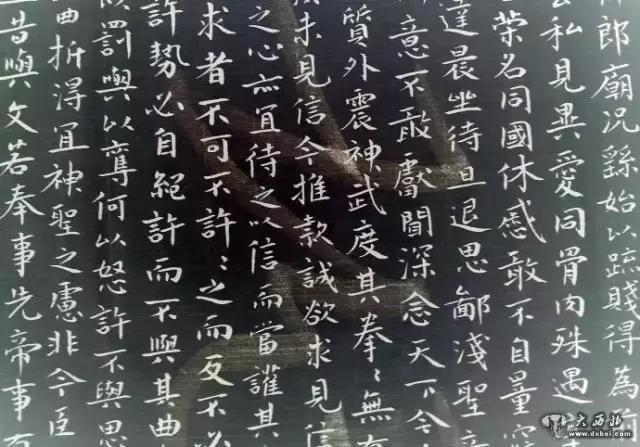 郎廟況繇始以疏賤得為
公私見異愛同骨肉殊遇
榮名同國休慼敢不自量
達晨坐待旦退思鄙淺聖
意不敢獻聞深念天下今
質外震神武度其拳〻無有
未見信今推款誠欲求見信
之心亦宜待之以信而當護其
求者不可不許〻之而反不必
許勢必自絕許而不與其曲
罰與以奪何以怒許不與思
曲折得宜神聖之慮非今臣
昔與文若奉事先帝事
大西北
www.dxbei.com